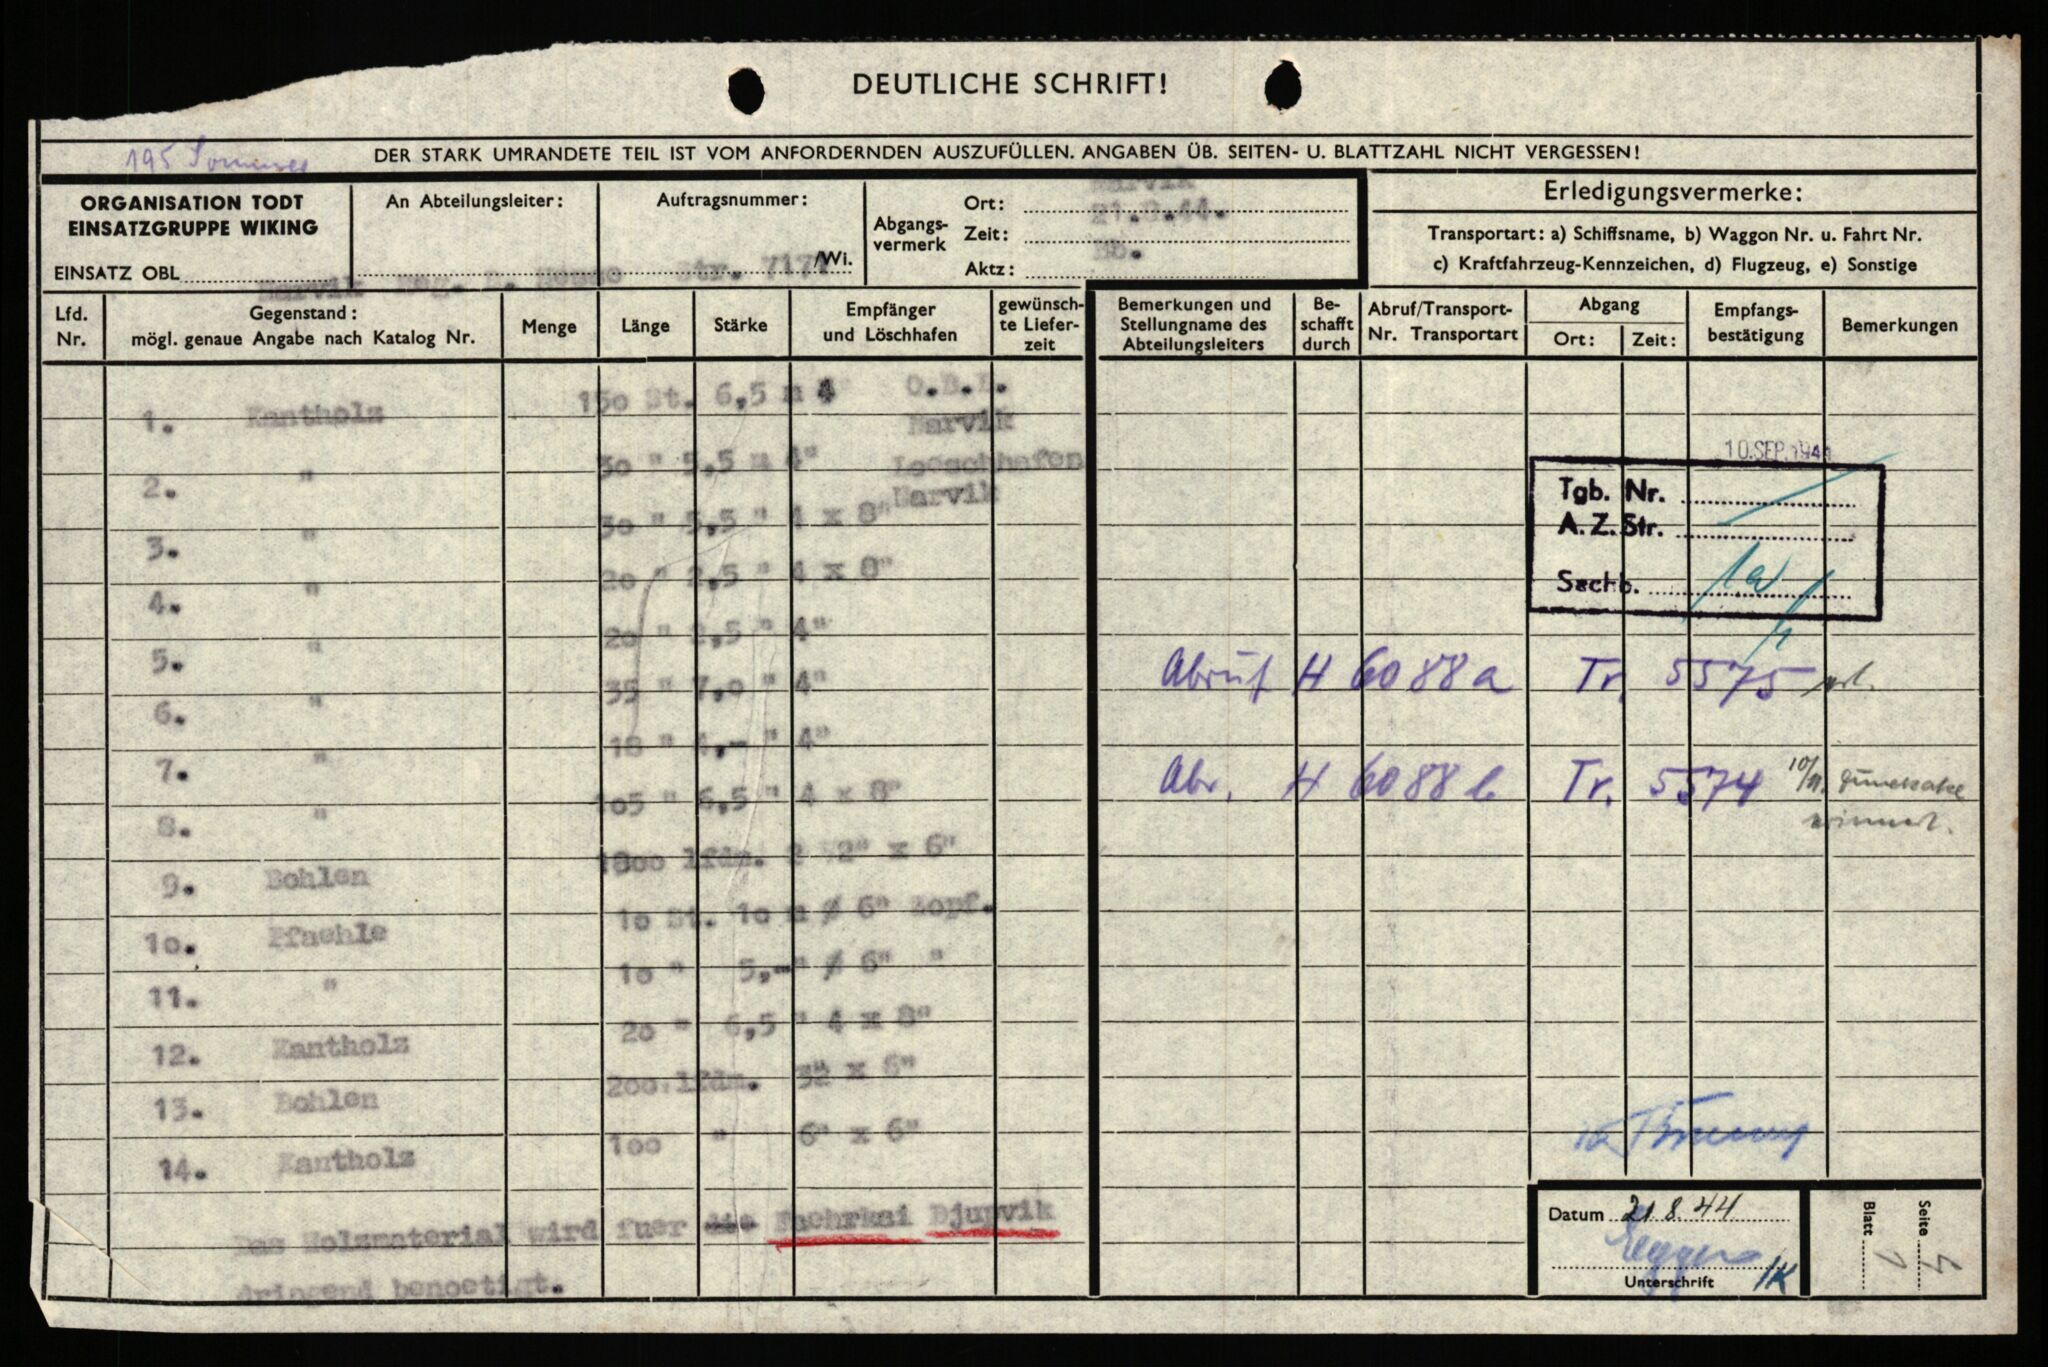 DEUTLICHE SCHRIFT!
195
DER STARK UMRANDETE TEIL IST VOM ANFORDERNDEN AUSZUFÜLLEN. ANGABEN ÜB. SEITEN- U. BLATTZAHL NICHT VERGESSEN!
ORGANISATION TODT
EINSATZGRUPPE WIKING
EINSATZ OBL
Narvik
Str. 7171
An Abteilungsleiter:
Auftragsnummer:
/Wi.
Abgangs-
vermerk
Ort: Narvik
Zeit: 21.8.44.
Aktz: Bb.
Erledigungsvermerke:
Transportart: a) Schiffsname, b) Waggon Nr. u. Fahrt Nr.
c) Kraftfahrzeug-Kennzeichen, d) Flugzeug, e) Sonstige
Lfd.
Nr.
Gegenstand:
mögl. genaue Angabe nach Katalog Nr.
Menge
Länge
Stärke
Empfänger
und Löschhafen
gewünsch-
te Liefer-
zeit
Bemerkungen und
Stellungname des
Abteilungsleiters
Be-
schafft
durch
Abruf/Transport-
Nr. Transportart
Abgang
Ort:
Zeit:
Empfangs-
bestätigung
Bemerkungen
1. Kantholz 150 St. 6,5 m 4" O.B.L.
Narvik
2. " 30 " 5,5 m 4" Loeschhafen
Narvik
3. " 30 " 5,5 " 4 x 8"
4. " 20 " 2,5 " 4 x 8"
5. " 20 " 2,5 " 4"
6. " 35 " 7,0 " 4"
7. " 18 " 4,- " 4"
8. " 105 " 6,5 " 4 x 8"
9. Bohlen 1800 lfdm. 2 1/2" x 6"
10. Pfaehle 10 St. 10 m Ø 6" Zopf.
11. " 10 " 5,-" Ø 6" "
12. Kantholz 20 " 6,5 " 4 x 8"
13. Bohlen 200 lfdm. 3" x 6"
14. Kantholz 100 " 6" x 6"
Das Holzmaterial wird fuer die Faehrkai Djupvik
dringend benoetigt.
10. SEP. 1944
Tgb. Nr.
A. Z. Str.
Sachb.
Abruf H 6088a Tr. 5575
Abr. H 6088 b Tr. 5574 10/11.
Datum 21.8.44
Unterschrift
Seite 4
Blatt 1